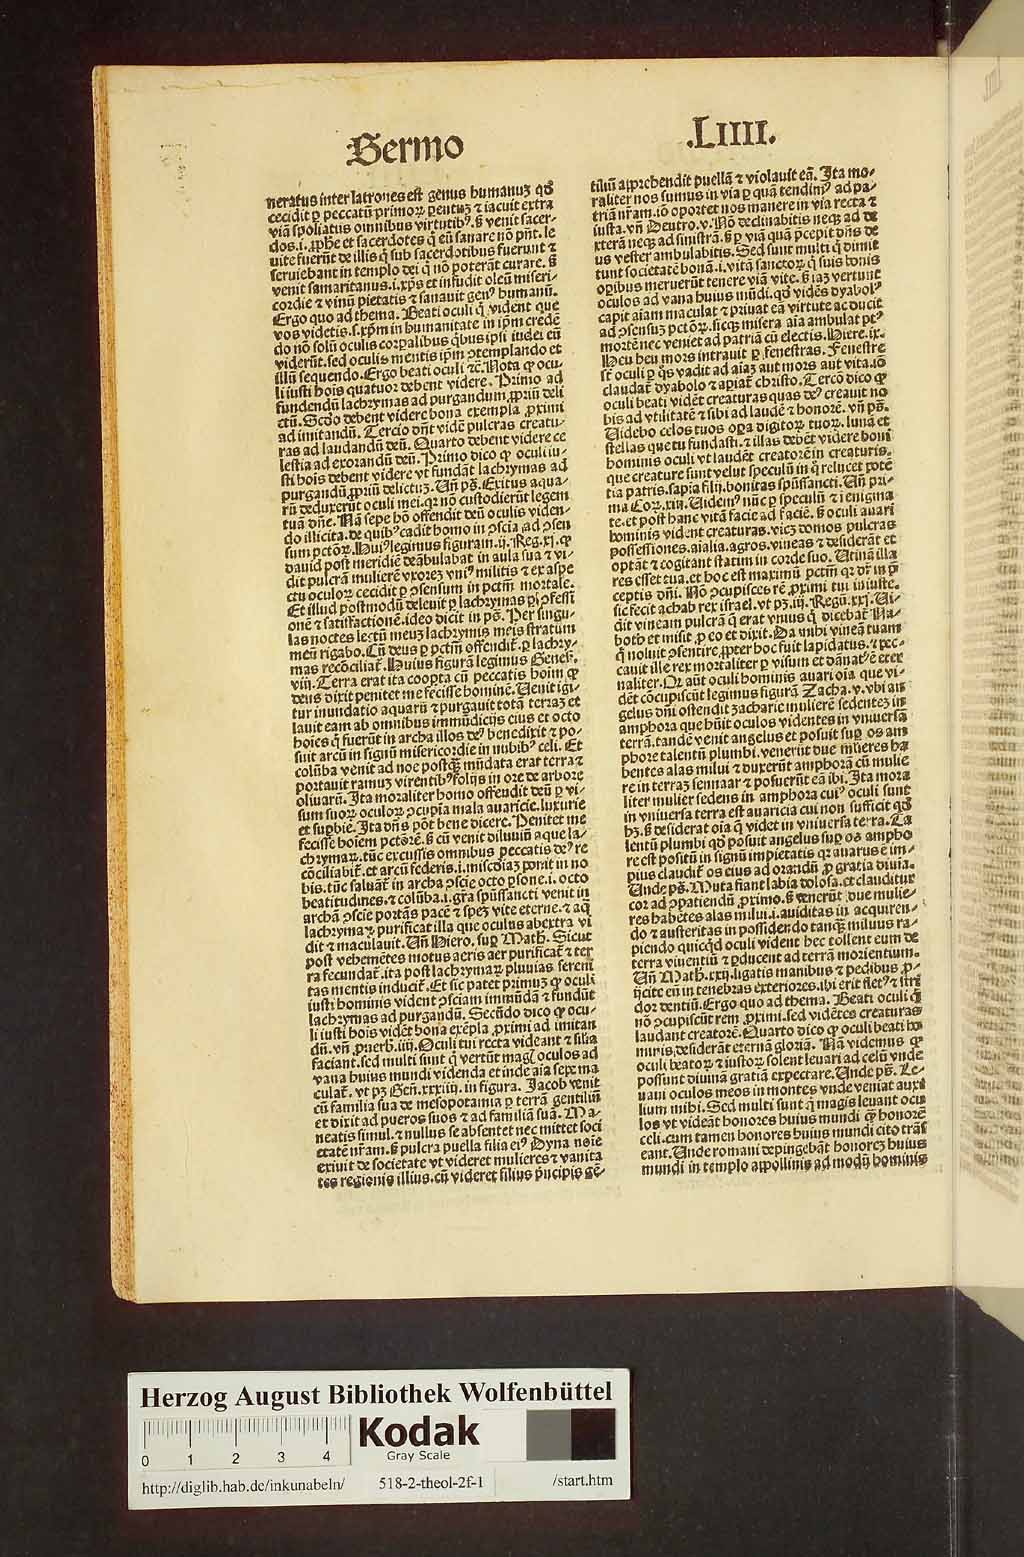 Sermo
.LIIII.
neratus inter latrones est genus humanuȝ qđ
cecidit ꝑ peccatū primoꝝ ꝑentuȝ ⁊ iacuit extra
viā spoliatus omnibus virtutibꝰ. ß venit sacer-
dos .i. ꝓphe et sacerdotes q̄ eū sanare nō pn̄t. le
uite fuerūt de illis q̄ sub sacerdotibus fuerunt ⁊
seruiebant in templo dei q̄ nō poterāt curare. ß
venit samaritanus .i. xp̄s et infudit oleū miseri-
cordie ⁊ vinū pietatis ⁊ sanauit genꝰ humanū.
Ergo quo ad thema. Beati oculi q̄ vident que
vos videtis .s. xp̄m in humanitate in ip̄m crede
do nō solū oculis corꝑalibus q̇bus ipsi iudei eū
viderūt. sed oculis mentis ip̄m ↄtemplando et
illū sequendo. Ergo beati oculi ⁊c̄. Nota ꝙ ocu-
li iusti hoīs quatuor debent videre. Primo ad
fundendū lachrymas ad purgandum ꝓpriū deli
ctū. Scd̄o debent videre bona exempla ꝓximi
ad imitandū. Tercio dn̄t vidē pulcras creatu-
ras ad laudandū deū. Quarto debent videre ce
lestia ad exorandū deū. Primo dico ꝙ oculi iu-
sti hoīs debent videre vt fundāt lachrymas ad
purgandū ꝓpriū delictuȝ. Un̄ pѕ̄. Exitus aqua-
rū deduxerūt oculi mei. qꝛ nō custodierūt legem
tuā dn̄e. Nā sepe hō offendit deū oculis viden-
do illicita. de quibꝰ cadit homo in ↄscia ad ↄsen
sum pctōꝝ. Huiꝰ legimus figuram .ij. Reg. xj. ꝙ
dauid post meridiē deābulabat in aula sua ⁊ vi-
dit pulcrā mulierē vxorēȝ vniꝰ militis ⁊ ex aspe
ctu oculoꝝ cecidit ꝑ ↄsensum in pctm̄ mortale.
Et illud postmodū deleuit ꝑ lachrymas ꝑ ↄfessi
onē ⁊ satisfactionē. ideo dicit in pѕ̄. Per singu-
las noctes lectū meuȝ lachrymis meis stratum
meū rigabo. Cū deus ꝑ pctm̄ offendit̄. ꝑ lachry-
mas recōciliat̄. Huius figurā legimus Genes̄.
viij. Terra erat ita coopta cū peccatis hoīm ꝙ
deus dixit penitet me fecisse hominē. Uenit igi-
tur inundatio aquarū ⁊ purgauit totā terraȝ et
lauit eam ab omnibus immūdicijs eius et octo
hoīes q̄ fuerūt in archa illos deꝰ benedixit ⁊ po-
suit arcū in signū misericordie in nubibꝰ celi. Et
colūba venit ad noe postq̄ȝ mūdata erat terra ⁊
portauit ramuȝ virentibꝰ folijs in ore de arbore
oliuarū. Ita moraliter homo offendit deū ꝑ vi-
sum suoꝝ oculoꝝ ↄcupīa mala auaricie. luxurie
et suꝑbie. Ita dn̄s pōt bene dicere. Penitet me
fecisse hoīem pctōrē. ß cū venit diluuiū aque la-
chrymaꝝ. tūc excussis omnibus peccatis deꝰ re
cōciliabit̄. et arcū federis .i. miscd̄iaȝ ponit in no
bis. tūc saluat̄ in archa ↄscie octo ꝑsone .i. octo
beatitudines. ⁊ colūba .i. gr̄a spūssancti venit in
archā ↄscie portās pacē ⁊ speȝ vite eterne. ⁊ aq̄
lachrymaꝝ purificat illa que oculus abextra vi
dit ⁊ maculauit. Un̄ Hiero. suꝑ Math. Sicut
post vehemētes motus aeris aer purificat̄ ⁊ ter
ra fecundat̄. ita post lachrymaꝝ pluuias sereni
tas mentis inducit̄. Et sic patet primuȝ ꝙ oculi
iusti hominis vident ↄsciam immūdā ⁊ fundūt
lachrymas ad purgandū. Secūdo dico ꝙ ocu-
li iusti hoīs vidēt bona exēpla ꝓximi ad imitan
dū. vn̄ ꝓuerb. iiij. Oculi tui recta videant ⁊ filia
faciant. sed multi sunt q̄ vertūt magꝭ oculos ad
vana huius mundi videnda et inde aīa sepe ma
culat̄. vt pȝ Gen̄. xxxiiij. in figura. Jacob venit
cū familia sua de mesopotamia ꝑ terrā gentiliū
et dixit ad pueros suos ⁊ ad familiā suā. Ma-
neatis simul. ⁊ nullus se absentet nec mittet soci
etatē nr̄am. ß pulcra puella filia eiꝰ Dyna noīe
exiuit de societate vt videret mulieres ⁊ vanita
tes regionis illius. cū videret filius pricipis gē-
tiliū apprehendit puellā ⁊ violauit eā. Ita mo-
raliter nos sumus in via ꝑ quā tendimꝰ ad pa-
triā nr̄am. iō oportet nos manere in via recta ⁊
iusta. vn̄ Deutro. v. Nō declinabitis neqꝫ ad de
xterā neqꝫ ad sinistrā. ß ꝑ viā quā p̄cepit dn̄s de
us vester ambulabitis. Sed sunt multi q̄ dimit
tunt societatē bonā .i. vitā sanctoꝝ q̄ suis bonis
oꝑibus meruerūt tenere viā vite. ß iaȝ vertunt
oculos ad vana huius mūdi. qđ vidēs dyabolꝰ
capit aīam maculat ⁊ priuat eā virtute ac ducit
ad ↄsensuȝ pctōꝝ. sicqꝫ misera aīa ambulat ptꝰ
mortē nec veniet ad patriā cū electis. Hiere. ix.
Heu heu mors intrauit ꝑ fenestras. Fenestre
st̄ oculi ꝑ q̄s vadit ad aīaȝ aut mors aut vita. iō
claudat̄ dyabolo ⁊ aꝑiat̄ christo. Tercō dico ꝙ
oculi beati vidēt creaturas quas deꝰ creauit no
bis ad vtilitatē ⁊ sibi ad laudē ⁊ honorē. vn̄ pѕ̄.
Uidebo celos tuos oꝑa digitoꝝ tuoꝝ. lunā et
stellas que tu fundasti. ⁊ illas debēt videre boni
hominis oculi vt laudēt creatorē in creaturis.
que creature sunt velut speculū in q̄ relucet potē
tia patris. sapīa filij. bonitas spūssancti. Un̄ pri-
ma Coꝝ. xiij. Uidemꝰ nūc ꝑ speculū ⁊ ī enigma
te. et post hanc vitā facie ad faciē. ß oculi auari
hominis vident creaturas. vicȝ domos pulcras
possessiones. aīalia. agros. vineas ⁊ desiderāt et
optāt ⁊ cogitant statim in corde suo. Utinā illa
res esset tua. et hoc est maximū pctm̄ qꝛ dr̄ in p̄
ceptis dn̄i. Nō ↄcupisces rē ꝓximi tui iniuste.
sic fecit achab rex israel. vt pȝ .iij. Regū. xxj. Ui-
dit vineam pulcrā q̄ erat vnius q̄ dicebat̄ Na-
both et misit ꝓ eo et dixit. Da mihi vineā tuam
q̄ noluit ↄsentire. ꝓpter hoc fuit lapidatus. ⁊ pec-
cauit ille rex mortaliter ꝑ visum et dānatꝰ ē eter
naliter. Qꝛ aūt oculi hominis auari oīa que vi-
dēt cōcupiscūt legimus figurā Zacha. v. vbi an
gelus dn̄i ostendit zacharie mulierē sedenteȝ in
amphora que hūit oculos videntes in vniuersā
terrā. tandē venit angelus et posuit suꝑ os am
phore talentū plumbi. venerūt due mlieres ha
bentes alas milui ⁊ duxerūt amphorā cū mulie
re in terraȝ sennaar ⁊ posuerūt eā ibi. Ita mora
liter mulier sedens in amphora cuiꝰ oculi sunt
in vniuersa terra est auaricia cui non sufficit qđ
hȝ. ß desiderat oīa q̄ videt in vniuersa terra. Ta
lentū plumbi qđ posuit angelus suꝑ os ampho
re est positū in signū impietatis qꝛ auarus ē im-
pius claudit̄ os eius ad orandū ꝓ gratia diuīa.
Unde pѕ̄. Muta fiant labia dolosa. et clauditur
cor ad ↄpatiendū ꝓximo. ß venerūt due mulie-
res habētes alas milui .i. auiditas in acquiren-
do ⁊ austeritas in possidendo tanqȝ miluus ra-
piendo quicqd̄ oculi vident hec tollent eum de
terra viuentiū ⁊ ꝑducent ad terrā morientium.
Un̄ Math. xxij. ligatis manibus ⁊ pedibus ꝓ-
ijcite eū in tenebras exteriores. ibi erit fletꝰ ⁊ stri
dor dentiū. Ergo quo ad thema. Beati oculi q̄
nō ↄcupiscūt rem ꝓximi. sed vidētes creaturas
laudant creatorē. Quarto dico ꝙ oculi beati ho
minis desiderāt eternā gloriā. Nā videmus ꝙ
oculi beatoꝝ ⁊ iustoꝝ solent leuari ad celū vnde
possunt diuinā gratiā expectare. Unde pѕ̄. Le-
uaui oculos meos in montes vnde veniat auxi
lium mihi. Sed multi sunt q̄ magis leuant ocu
los vt videāt honores huius mundi q̄ honorē
celi. cum tamen honores huius mundi cito trās
eant. Unde romani depingebāt honoreȝ huius
mundi in templo appollinis ad modū hominis
Herzog August Bibliothek Wolfenbüttel
0 1 2 3 4
Kodak
Gray Scale
http://diglib.hab.de/inkunabeln/ 518-2-theol-2f-1 /start.htm